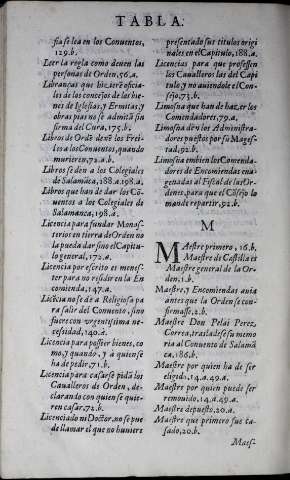 TABLA.
sia se lea en los Conuentos,
129.b.
Leer la regla como deuen las
personas de Orden, 56.a.
Libranças que hizieré oficia-
les a los concejos de las bie-
nes de Iglesias, y Ermitas, y
obras pias no se admitã sin
firma del Cura, 175.b.
Libros de Ordẽ dexẽ los Frei-
les a los Conuentos, quando
murieren, 72.a.b.
Libros se den a los Colegiales
de Salamãca, 188.a.198.a.
Libros que han de dar los Cõ-
uentos a los Colegiales de
Salamanca, 198.a.
Licencia para fundar Monas-
terios en tierra de Orden no
la pueda dar sino el Capitu-
lo general, 172.a.
Licencia por escrito es menes-
ter para no residir en la En
comienda, 147.a.
Licẽcia no se dè a Religiosa pa
ra salir del Conuento, sino
fuere con vrgentissima ne-
cessidad, 140.a.
Licencia para posseer bienes, co
mo, y quando, y a quien se
ha de pedir, 71.b.
Licencia para casarse pidã los
Caualleros de Orden, de-
clarando con quien se quie-
ren casar, 72.b.
Licenciado ni Doctor, no se pue
de llamar el que no huuiere
presentado sus titulos origi-
nales en el Capitulo, 188.a.
Licencias para que professen
los Caualleros las dè el Capi
tulo, y no auiendole el Con-
sejo, 73.b.
Limosna que han de hazer los
Comendadores, 79.a.
Limosna dèn los Administra-
dores puestos por su Mages-
tad, 92.b.
Limosna embien los Comenda-
dores de Encomiendas ena-
genadas al Fiscal de las Or-
denes, para que el Cõsejo lo
mande repartir, 92.b.
M
MAestre primero, 16.b.
Maestre de Castilla es
Maestre general de la Or-
den, 1.b.
Maestre, y Encomiendas auia
antes que la Orden se con-
firmasse, 2.b.
Maestre Don Pelai Perez,
Correa, traslada se su memo
ria al Conuento de Salamã
ca, 186.b.
Maestre por quien ha de ser
elegido, 14.a.49.a.
Maestre por quien puede ser
remouido, 14.a.49.a.
Maestre depuesto, 20.a.
Maestre que primero fue ca-
sado, 20.b.
Maes-